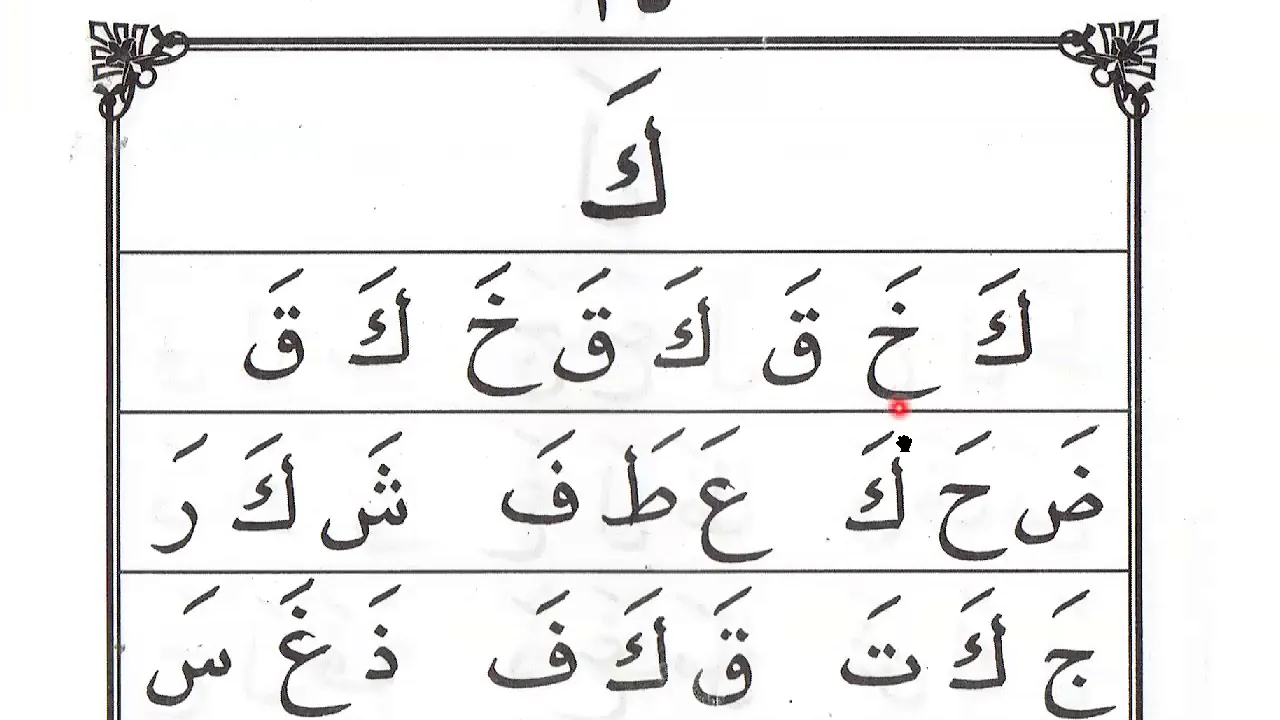 كَ
كَ خَ قَ كَ قَ خَ كَ قَ
ضَ حَ كَ عَ طَ فَ شَ كَ رَ
جَ كَ تَ قَ كَ فَ ذَ غَ سَ